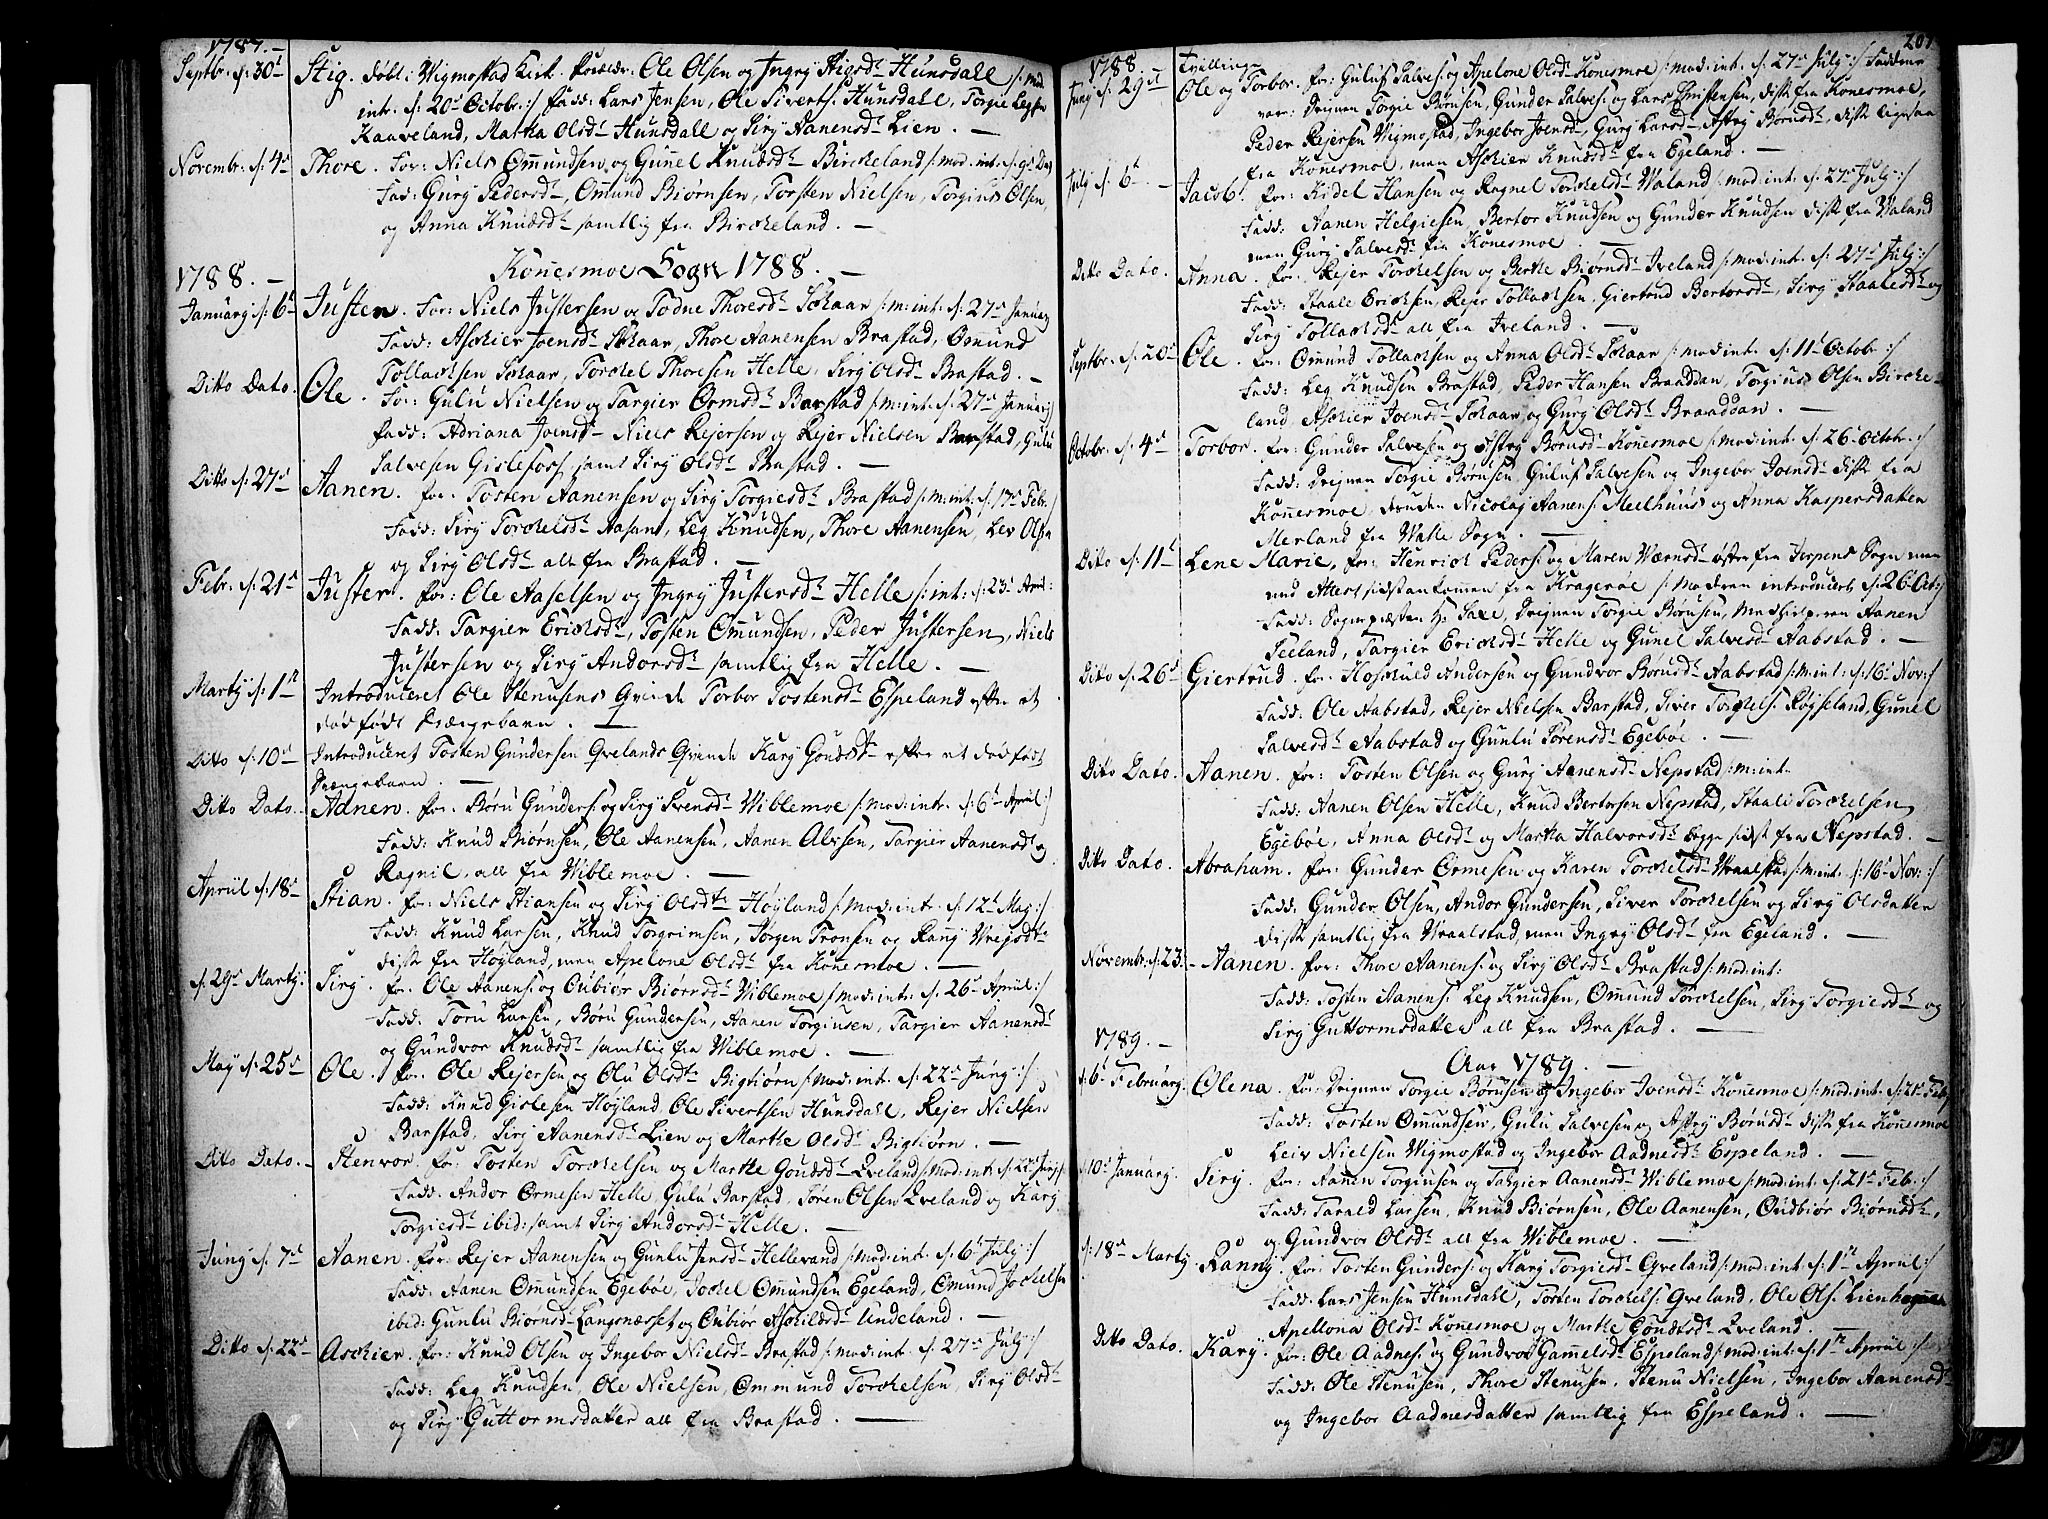 1787.
Septbr. d: 30t Stig. døbt i Wigmostad Kirk. forældr: Ole Olsen og Ingrÿ Stigsdt Hunsdall /: mod
int. d: 20d Octobr :/ fadd: Lars Jensen, Ole Siverts. Hunsdahl, Torgie Legsen
Kaaveland, Martha Olsdt Hunsdall og Sirÿ Aanensdt Lien. —
Novembr. d: 4d Thore. For: Niels Omundsen og Gunnel Knudsdt Birckeland /: mod. int. d: 9d Dec
Fad: Gurÿ Pedersdt, Omund Biørnsen, Torsten Nielsen, Torgius Olsen,
og Anna Knudsdt samtlig fra Birckeland. —
1788. — Konesmoe Sogn 1788. —
Januarÿ d: 6t Justen. For: Niels Justersen og Todne Thoresdt Skaar /: m: int: d: 27d Januarÿ
Fadd: Asckier Joensdt Skaar, Thore Aanensen Brastad, Omund
Tollacksen Skaar, Torckel Thorsen Helle, Sirÿ Olsdt Brastad. —
Ditto Dato. Ole. For: Gulu Nielsen og Targier Ormsdt Barstad /: m: int. d: 27d Januarÿ
Fadd: Adriana Joensdt Niels Rejersen og Rejer Nielsen Barstad, Gulu
Salvesen Gislefoss, samt Sirÿ Olsdt Brastad. —
Ditto d: 27d Aanen. for. Tosten Aanensen og Sirÿ Torgiesdt Brastad /: m: int: d: 17d Febr. /
Fadd: Sirÿ Torckelsdt Aasant, Leg Knudsen, Thore Aanensen, Lev Olsen
og Sirÿ Olsdt all fra Brastad. —
Febr. d: 21d Juster. for: Ole Aaselsen og Ingrÿ Justersdt Helle /: int: d: 23d April:
Fadd: Targier Ericksdt, Tosten Omundsen, Peder Justersen, Niels
Justersen og Sirÿ Andorsdt samtlig fra Helle. —
Martÿ d: 1st Introduceret Ole Stenusens Qvinde Torbor Tostensdt Espeland efter et
dødfødt Drengebarn. —
Ditto d: 10d Introduceret Tosten Gundersen Qvelands Qvinde Karÿ Goudsdt efter et dødfødt
Drengebarn —
Ditto Dato. Adnen. for. Børu Gunders: og Sirÿ Svensdt Wiblemoe /: mod: int: d: 6t April :/
Fadd: Knud Biørnsen, Ole Aanensen, Aanen Alvsen, Targier Aanensdt og
Ragnil, all fra Wiblemoe. —
Apriil d: 18d Stian. for: Niels Stiansen og Sirÿ Olsdtr Høyland /: Mod: int. d: 12t Maÿ :/
Fadd: Knud Larsen, Knud Torgrimsen, Jørgen Tronsen og Ranÿ Wrejsdtr
disse fra Høyland, men Apelone Olsdt fra Konesmoe. —
d: 29d Martÿ. Sirÿ. for. Ole Aanens: og Oubiør Biørnsdt Wiblemoe /: Mod: int: d. 26d Apriil :/
Fadd: Toru Larsen, Børu Gundersen, Aanen Torginsen, Targier Aanensdt
og Gundvor Knudsdt samtlig fra Wiblemoe. —
Maÿ d: 25d Ole. for. Ole Rejersen og Olu Olsdtr Bigtiørn /: mod: int. d: 22d Junÿ :/
Fadd: Knud Gislesen Høyland, Ole Sivertsen Hunsdahl, Rejer Nielsen
Barstad, Sirÿ Aanensdt Lien og Marthe Olsdt Bigtiørn. —
Ditto Dato. Stenvor. for: Tosten Torckelsen og Marthe Goudsdt Qveland /: mod: int. d: 22d Junÿ :/
Fadd: Andor Ormesen Helle, Gulu Barstad, Søren Olsen Qveland og Karÿ
Torgiesdt ibid: samt Sirÿ Andorsdt Helle. —
Junÿ d: 7d Aanen. for. Rejer Aanensen og Gunlu Jensdt Hellevand /: mod: int. d. 6t Julÿ :/
Fadd: Aanen Omundsen Egebøe, Jockel Omundsen Egeland, Omund Jockelsen
ibid: Gunlu Biørnsdt Langnæsset og Oubiør Askildsdt Undeland. —
Ditto d: 22d Asckier. for: Knud Olsen og Ingebor Nielsdt Brastad /: mod: int. d: 27d Julÿ :/
Fadd: Leg Knudsen, Ole Nielsen, Ommund Torckelsen, Sirÿ Olsdt
og Sirÿ Guttormsdatter all fra Brastad. —
207
1788 Tvillinger
Junÿ d: 29d Ole og Torbor. for: Guluf Salves: og Apelone Olsdt Konesmoe /: mod: int. d: 27d Julÿ :/ Faddere
vare: Drignen Torgie Børusen, Gunder Salves: og Lars Christensen, disse fra Konesmoe,
Peder Rejersen Wigmostad, Ingebor Joensdt, Gurÿ Larsdt Astrÿ Børusdt, disse ligesaa
fra Konesmoe, men Asckier Knudsdt fra Egeland. —
Julÿ d. 6t — Jacob. for: Kidel Hansen og Ragnel Torckelsdt Waland /: mod: int. d. 27d Julÿ :/
Fadd: Aanen Helgiesen, Bertor Knudsen og Gunder Knudsen disse fra Waland
men Gurÿ Salvesdt fra Konesmoe. —
Ditto Dato. Anna. for. Rejer Torckelsen og Berthe Biørnsdt Iveland /: mod: int. d: 27d Julÿ :/
Fadd: Staale Ericksen, Rejer Tollacksen, Giertrud Bertorsdt, Sirÿ Staalesdt og
Sirÿ Tollacksdt all fra Iveland. —
Septbr. d: 20d Ole. for: Omund Tollacksen og Anna Olsdt Skaar /: mod: int. d: 11t Octobr. :/
Fadd: Leg Knudsen Brastad, Peder Hansen Braaddan, Torgius Olsen Bircke-
land, Asckier Joensdt Skaar og Gurÿ Olsdt Braaddan. —
Octobr. d: 4d Torbor. for: Gunder Salvesen og Astrÿ Børusdt Konesmoe /: Mod: int. d: 26 Octobr. :/
Fadd: Drignen Torgie Børusen, Guluf Salvesen og Ingebor Joensdt disse fra
Konesmoe, Nicolaj Aanens: Meelhuus og Anna Kaspersdatter
Merland fra Walle Sogn. —
Ditto d: 11t Lene Marie, for: Henrick Peders: og Maren Wærnsdt fra Jerpens Sogn men
fra Krageröe /: Moderen introduceret d: 26d Oct :/
Fadd: Sogne præsten H: Saxe, Drignen Torgie Børusen, Medhielperen Aanen
Seeland, Targier Ericksdt Helle og Gunel Salvesdt Aabstad. —
Ditto d: 26d Giertrud. for: Hosckuld Andersen og Gundvor Børusdt Aabstad /: M: int: d: 16t Nov :/
Fadd: Ole Aabstad, Rejer Nielsen Barstad, Siver Torckels: Røysland, Gunel
Salvesdt Aabstad og Gunlu Sørensdt Egebøe. —
Ditto Dato. Aanen. for: Tosten Olsen og Gurÿ Aanensdt Nepstad /: m: int.
Fadd: Aanen Olsen Helle, Knud Bertorsen Nepstad, Staale Torckelsen
Egebøe, Anna Olsdt og Martha Halvorsdt begge sidst fra Nepstad. —
Ditto Dato. Abraham. for: Gunder Ormesen og Karen Torckelsdt Wraalstad /: M: int. d: 16t Nov: :/
Fadd: Gunder Olsen, Andor Gundersen, Siver Torckelsen og Sirÿ Olsdatter
disse samtlig fra Wraalstad, men Ingrÿ Olsdt fra Egeland. —
Novembr: d: 23: Aanen. for: Thore Aanens: og Sirÿ Olsdt Brastad /: mod: int:
Fadd: Tosten Aanens: Leg Knudsen, Omund Torckelsen, Sirÿ Torgiesdt og
Sirÿ Guttormsdatter all fra Brastad. —
1789. — Aar 1789. —
d: 6t Februarÿ. Olena. for: Drignen Torgie Børusen og Ingebor Joensdt Konesmoe /: mod. int. d: 21d Feb
Fadd: Tosten Omundsen, Gulu Salvesen og Astrÿ Børusdt disse fra Konesmoe
Leiv Nielsen Wigmostad og Ingebor Aadnesdt Espeland. —
d: 10d Januarÿ. Sirÿ. for: Aanen Torginsen og Targier Aanensdt Wiblemoe /: mod: int. d: 21d Feb: :/
Fadd: Tarald Larsen, Knud Biørnsen, Ole Aanensen, Oudbiør Biørnsdt,
og Gundvor Olsdt all fra Wiblemoe. —
d: 18d Martÿ Ranny. for: Tosten Gunders: og Karÿ Torgiesdt Qveland /: mod: int: d: 1st Apriil :/
Fadd: Lars Jensen Hunsdahl, Tosten Torckels: Qveland, Ole Ols: Lien
Apellona Olsdt Konesmoe og Marthe Goudsdt Qveland. —
Ditto Dato. Karÿ. for: Ole Aadnes: og Gundvor Gammelsdt Espeland /: mod: int. d: 1st Apriil :/
Fadd: Ole Stenusen, Thore Stenusen, Stenu Nielsen, Ingebor Aanensdt
og Ingebor Aadnesdatter samtlig fra Espeland. —